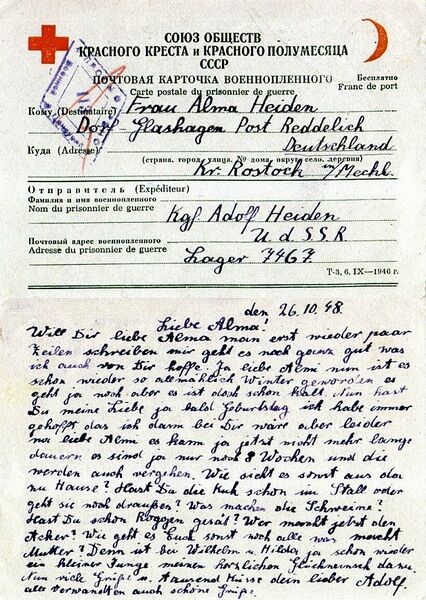 СОЮЗ ОБЩЕСТВ
КРАСНОГО КРЕСТА и КРАСНОГО ПОЛУМЕСЯЦА
СССР
ПОЧТОВАЯ КАРТОЧКА ВОЕННОПЛЕННОГО
Бесплатно
Carte postale du prisonnier de guerre
Franc de port
Кому (Destinataire) Frau Alma Heiden
Dorf Glashagen Post Reddelich
Куда (Adresse) Deutschland
(страна, город, улица, № дома, округ, село, деревня)
Kr. Rostock i/Mechl.
Отправитель (Expéditeur)
Фамилия и имя военнопленного
Nom du prisonnier de guerre
Kgf. Adolf Heiden
Почтовый адрес военнопленного
U. d. S. S. R.
Adresse du prisonnier de guerre
Lager 7467
Т-3, 6. IX—1946 г.
den 26.10.48.
Liebe Alma!
Will Dir liebe Alma man erst wieder paar
Zeilen schreiben mir geht es noch ganz gut was
ich auch von Dir hoffe. Ja liebe Almi nun ist es
schon wieder so allmählich Winter geworden es
geht ja noch aber es ist doch schon kalt. Nun hast
Du meine Liebe ja bald Geburtstag ich habe immer
gehofft das ich dann bei Dir wäre aber leider
liebe Almi es kann ja jetzt nicht mehr lange
dauern es sind ja nur noch 8 Wochen und die
werden auch vergehen. Wie sieht es sonst aus da
zu Hause? Hast Du die Kuh schon im Stall oder
geht sie noch draußen? Was machen die Schweine?
Hast Du schon Roggen gesät? Wer macht jetzt den
Acker? Wie geht es Euch sonst noch alle was macht
Mutter? Denn ist bei Wilhelm u. Hilda ja schon wieder
ein kleiner Junge meinen herzlichen Glückwunsch dazu.
Nun viele Grüße u. tausend Küsse dein lieber Adolf.
alle Verwandten auch schöne Grüße.